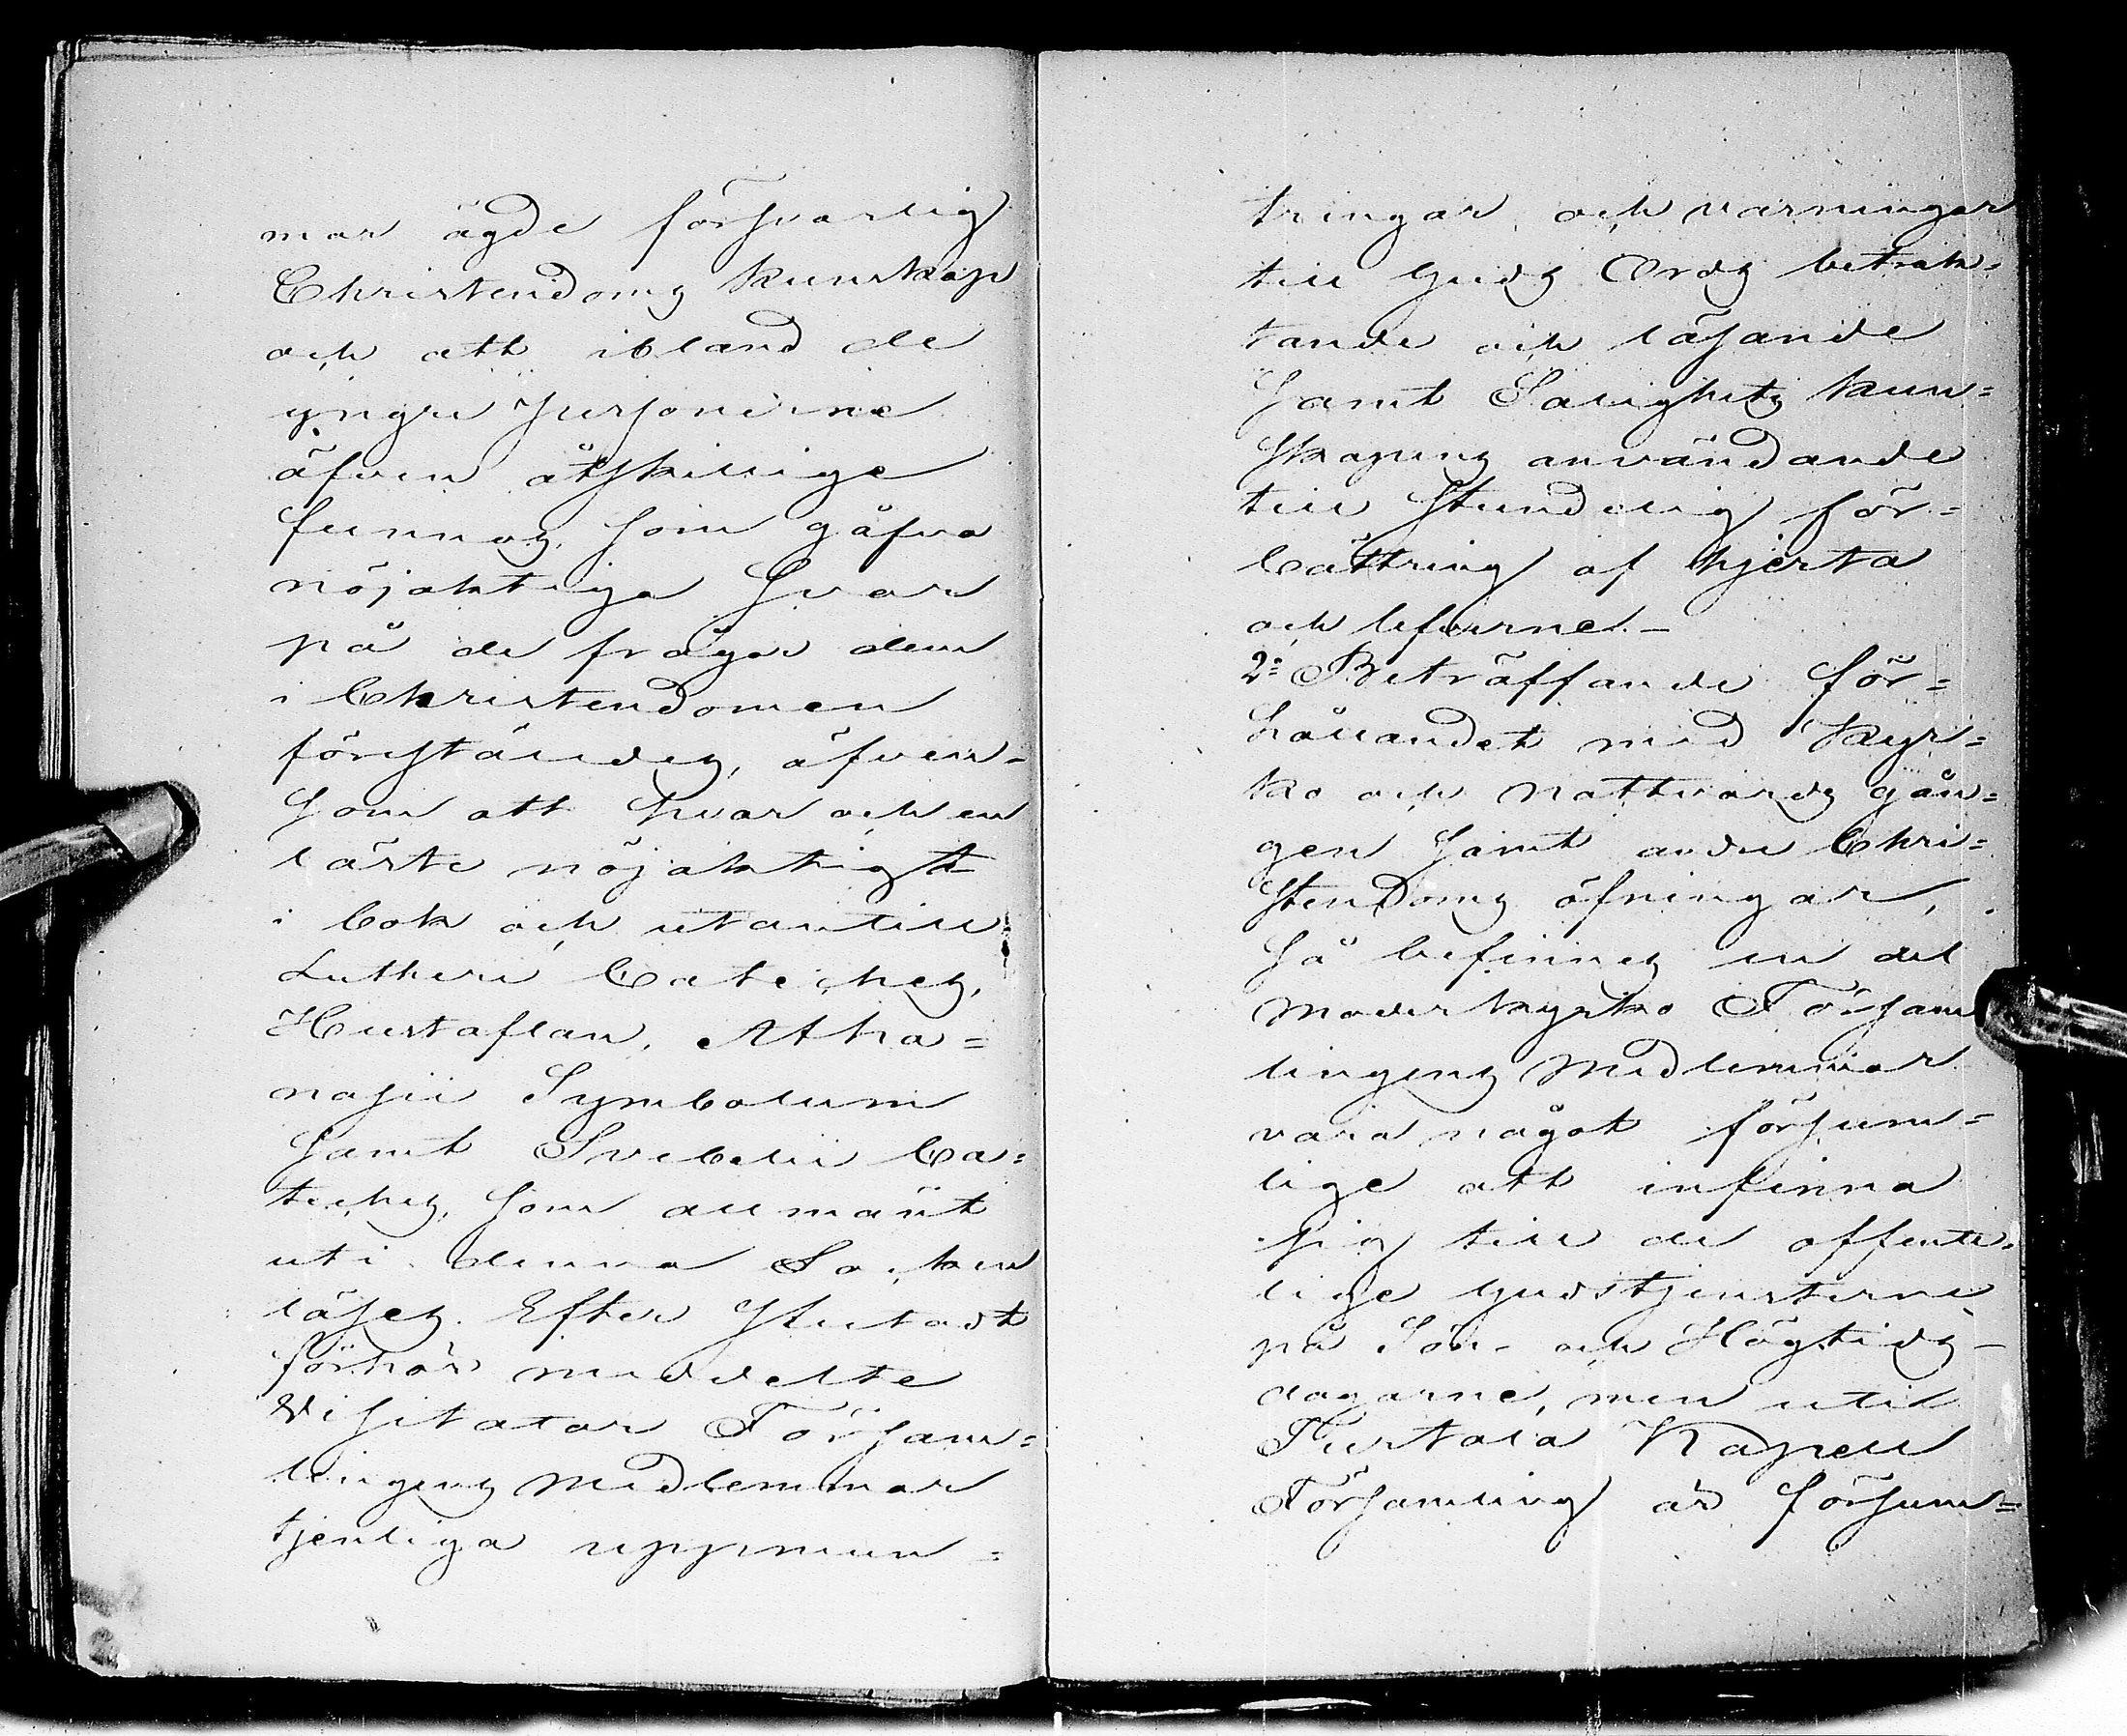 mar ägde försvarlig
Christendoms kunskap
och att ibland de
yngre personerne
äfven åtskillige
funnos, som gåfvo
nöjaktiga svar
på de frågor dem
i Christendomen
förestäldes, äfven-
som att hvar och en
läste nöjaktigt
i bok och utantill
Lutheri Cateches,
Hustaflan, Atha=
nasii Symbolum
samt Svebelii Ca=
teches, som allmänt
uti denna Socken
läses. Efter slutadt
förhör meddelte
Visitator Försam=
lingens medlemmar
tjenliga uppmun=
tringar och varningar
till Guds Ords betrak=
tande och läsande
samt Salighets kun=
skapens användande
till stundelig för=
bättring af hjerta
och lefverne.-
2:o Beträffande för=
hållandet med Kyr=
ko och nattvards gån=
gen samt andre Chri=
stendoms öfningar,
så befinnes en del
moderkyrko Försam
lingens medlemmar
vara något försum=
lige att infinna
sig till de offente=
lige Gudstjensterne
på Sön- och Högtids-
dagarne, men uti
Turtola Kapell
Församling är försum=